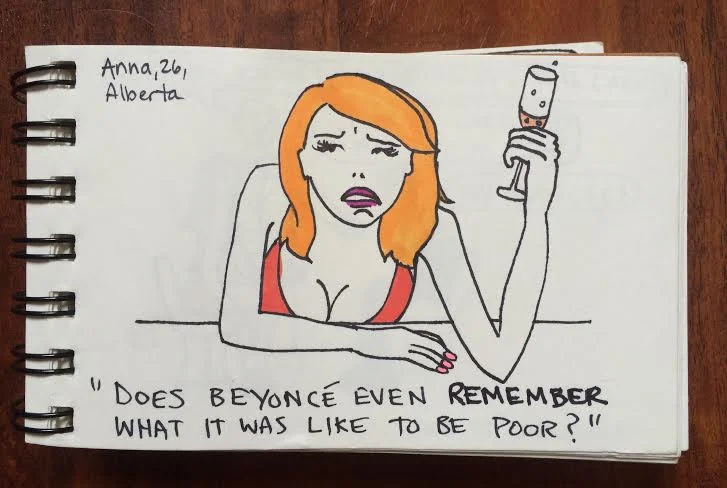 Anna, 26,
Alberta
"DOES BEYONCÉ EVEN REMEMBER
WHAT IT WAS LIKE TO BE POOR?"